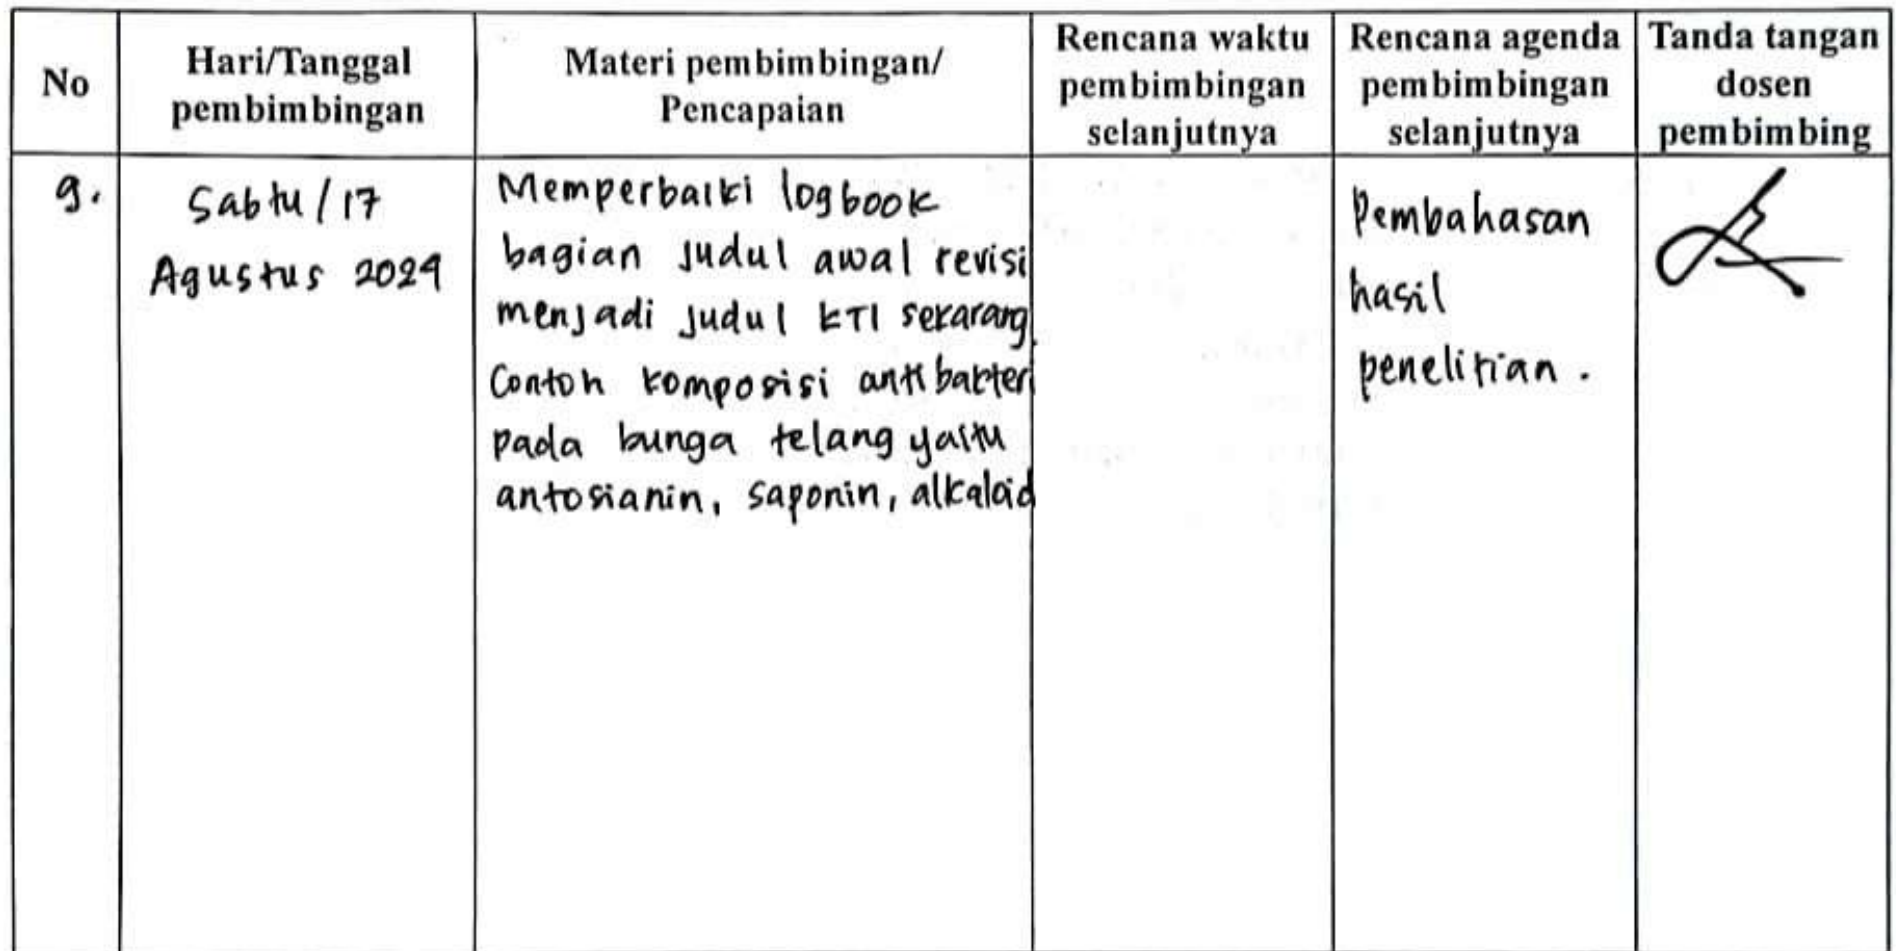 No
Hari/Tanggal
pembimbingan
Materi pembimbingan/
Pencapaian
Rencana waktu
pembimbingan
selanjutnya
Rencana agenda
pembimbingan
selanjutnya
Tanda tangan
dosen
pembimbing
9.
Sabtu/17
Agustus 2024
Memperbaiki logbook
bagian judul awal revisi
menjadi judul KTI sekarang.
Contoh komposisi antibakteri
pada bunga telang yaitu
antosianin, saponin, alkaloid
Pembahasan
hasil
penelitian.